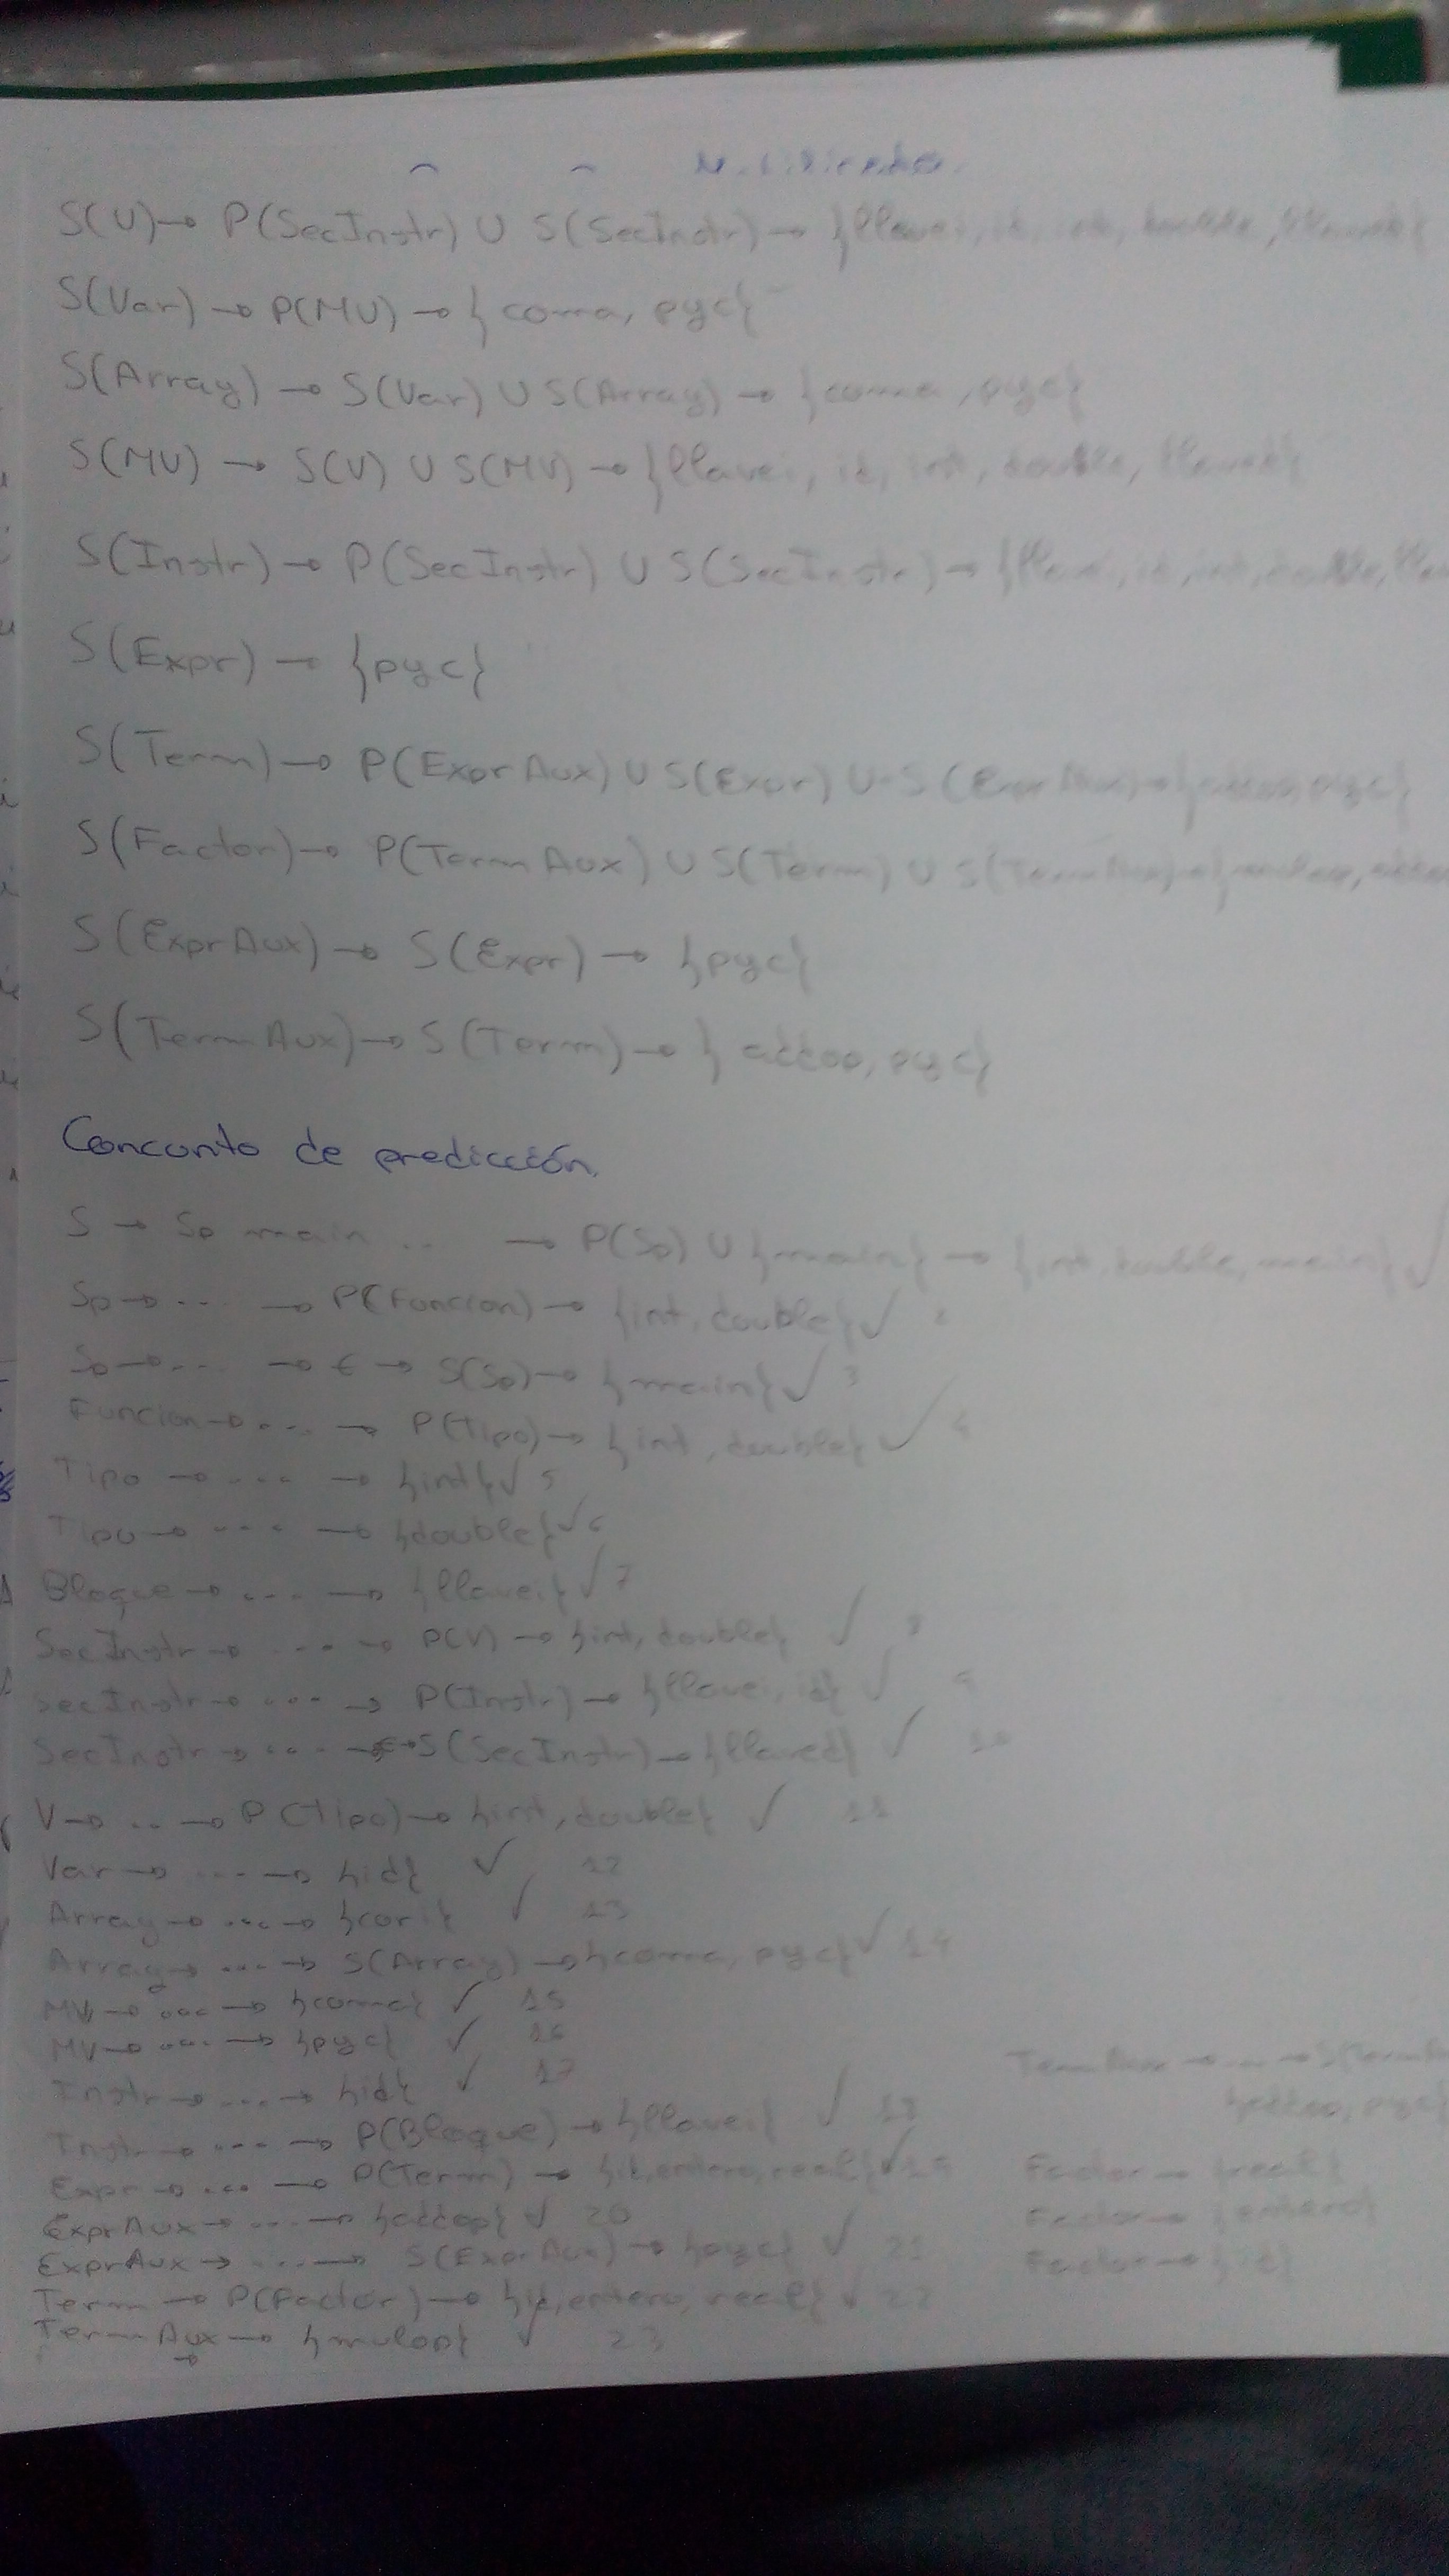 S(V) → P(SecInstr) ∪ S(SecInstr) → {llavei, id, int, double, llaved}
S(Var) → P(MV) → {coma, pyc}
S(Array) → S(Var) ∪ S(Array) → {coma, pyc}
S(MV) → S(V) ∪ S(MV) → {llavei, id, int, double, llaved}
S(Instr) → P(SecInstr) ∪ S(SecInstr) → {llavei, id, int, double,
S(Expr) → {pyc}
S(Term) → P(ExprAux) ∪ S(Expr) ∪ S(ExprAux) → {addop, pyc}
S(Factor) → P(TermAux) ∪ S(Term) ∪ S(TermAux) → {mulop,
S(ExprAux) → S(Expr) → {pyc}
S(TermAux) → S(Term) → {addop, pyc}
Concunto de predicción.
S → Sp main .. → P(Sp) ∪ {main} → {int, double, main} ✓
Sp → ... → P(Funcion) → {int, double} ✓ 2
Sp → ... → € → S(Sp) → {main} ✓ 3
Funcion → ... → P(Tipo) → {int, double} ✓ 4
Tipo → ... → {int} ✓ 5
Tipo → ... → {double} ✓ 6
Bloque → ... → {llavei} ✓ 7
SecInstr → ... → P(V) → {int, double} ✓ 8
SecInstr → ... → P(Instr) → {llavei, id} ✓ 9
SecInstr → ... → S(SecInstr) → {llaved} ✓ 10
V → .. → P(Tipo) → {int, double} ✓ 11
Var → ... → {id} ✓ 12
Array → ... → {cori} ✓ 13
Array → ... → S(Array) → {coma, pyc} ✓ 14
MV → ... → {coma} ✓ 15
MV → ... → {pyc} ✓ 16
Instr → ... → {id} ✓ 17
Instr → ... → P(Bloque) → {llavei} ✓ 18
Expr → ... → P(Term) → {id, entero, real} ✓ 19
ExprAux → ... → {addop} ✓ 20
ExprAux → ... → S(ExprAux) → {pyc} ✓ 21
Term → P(Factor) → {id, entero, real} ✓ 22
TermAux → {mulop} ✓ 23
TermAux → ... →
{addop, pyc}
Factor → {real}
Factor → {entero}
Factor → {id}